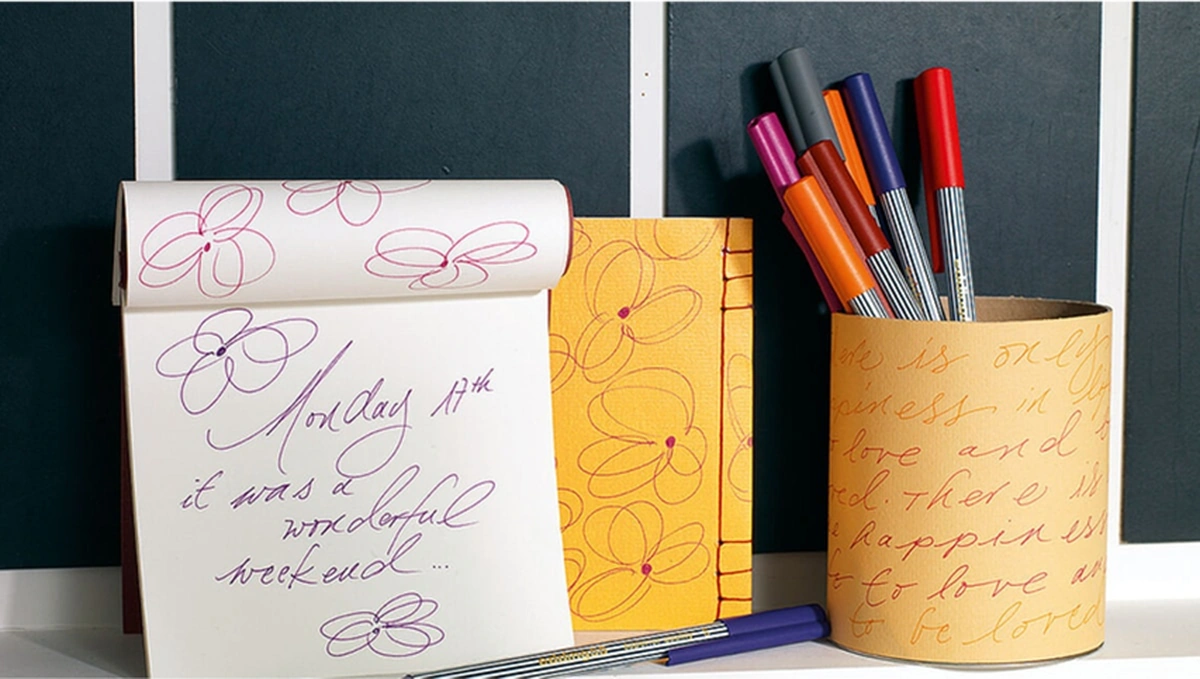 Monday 17th
it was a
wonderful
weekend...
ere is only
piness in
love and
ed. There is
happiness
to love an
to be loved